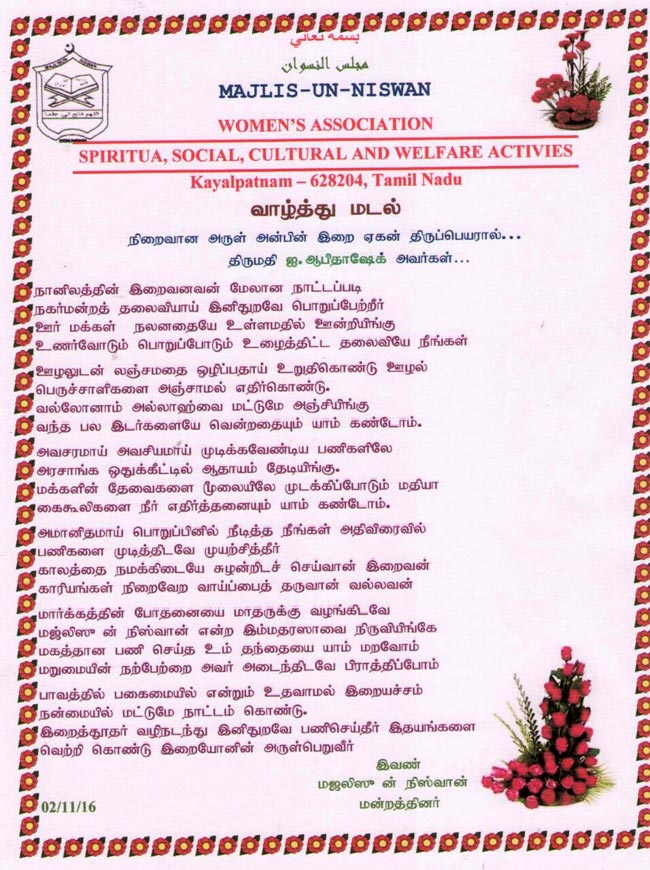 بسمه تعالي
مجلس النسوان
MAJLIS-UN-NISWAN
WOMEN'S ASSOCIATION
SPIRITUA, SOCIAL, CULTURAL AND WELFARE ACTIVIES
Kayalpatnam – 628204, Tamil Nadu
வாழ்த்து மடல்
நிறைவான அருள் அன்பின் இறை ஏகன் திருப்பெயரால்...
திருமதி ஐ.ஆபிதாஷேக் அவர்கள்...
நானிலத்தின் இறைவனவன் மேலான நாட்டப்படி
நகர்மன்றத் தலைவியாய் இனிதுறவே பொறுப்பேற்றீர்
ஊர் மக்கள் நலனதையே உள்ளமதில் ஊன்றியிங்கு
உணர்வோடும் பொறுப்போடும் உழைத்திட்ட தலைவியே நீங்கள்
ஊழலுடன் லஞ்சமதை ஒழிப்பதாய் உறுதிகொண்டு ஊழல்
பெருச்சாளிகளை அஞ்சாமல் எதிர்கொண்டு.
வல்லோனாம் அல்லாஹ்வை மட்டுமே அஞ்சியிங்கு
வந்த பல இடர்களையே வென்றதையும் யாம் கண்டோம்.
அவசரமாய் அவசியமாய் முடிக்கவேண்டிய பணிகளிலே
அரசாங்க ஒதுக்கீட்டில் ஆதாயம் தேடியிங்கு.
மக்களின் தேவைகளை மூலையிலே முடக்கிப்போடும் மதியா
கைகூலிகளை நீர் எதிர்த்தனையும் யாம் கண்டோம்.
அமானிதமாய் பொறுப்பினில் நீடித்த நீங்கள் அதிவிரைவில்
பணிகளை முடித்திடவே முயற்சித்தீர்
காலத்தை நமக்கிடையே சுழன்றிடச் செய்வான் இறைவன்
காரியங்கள் நிறைவேற வாய்ப்பைத் தருவான் வல்லவன்
மார்க்கத்தின் போதனையை மாதருக்கு வழங்கிடவே
மஜ்லிஸு ன் நிஸ்வான் என்ற இம்மதரஸாவை நிருவியிங்கே
மகத்தான பணி செய்த உம் தந்தையை யாம் மறவோம்
மறுமையின் நற்பேற்றை அவர் அடைந்திடவே பிராத்திப்போம்
பாவத்தில் பகைமையில் என்றும் உதவாமல் இறையச்சம்
நன்மையில் மட்டுமே நாட்டம் கொண்டு.
இறைத்தூதர் வழிநடந்து இனிதுறவே பணிசெய்தீர் இதயங்களை
வெற்றி கொண்டு இறையோனின் அருள்பெறுவீர்
இவண்
மஜலிஸு ன் நிஸ்வான்
மன்றத்தினர்
02/11/16